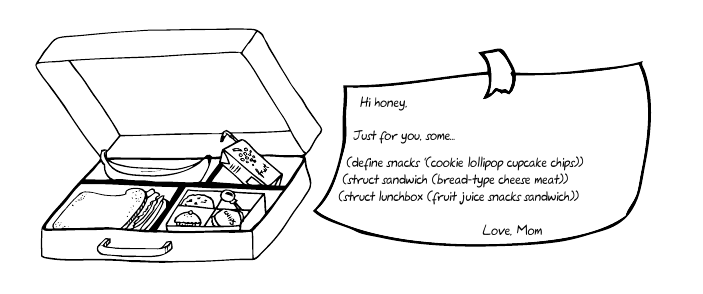 Hi honey,
Just for you, some...
(define snacks '(cookie lollipop cupcake chips))
(struct sandwich (bread-type cheese meat))
(struct lunchbox (fruit juice snacks sandwich))
Love, Mom